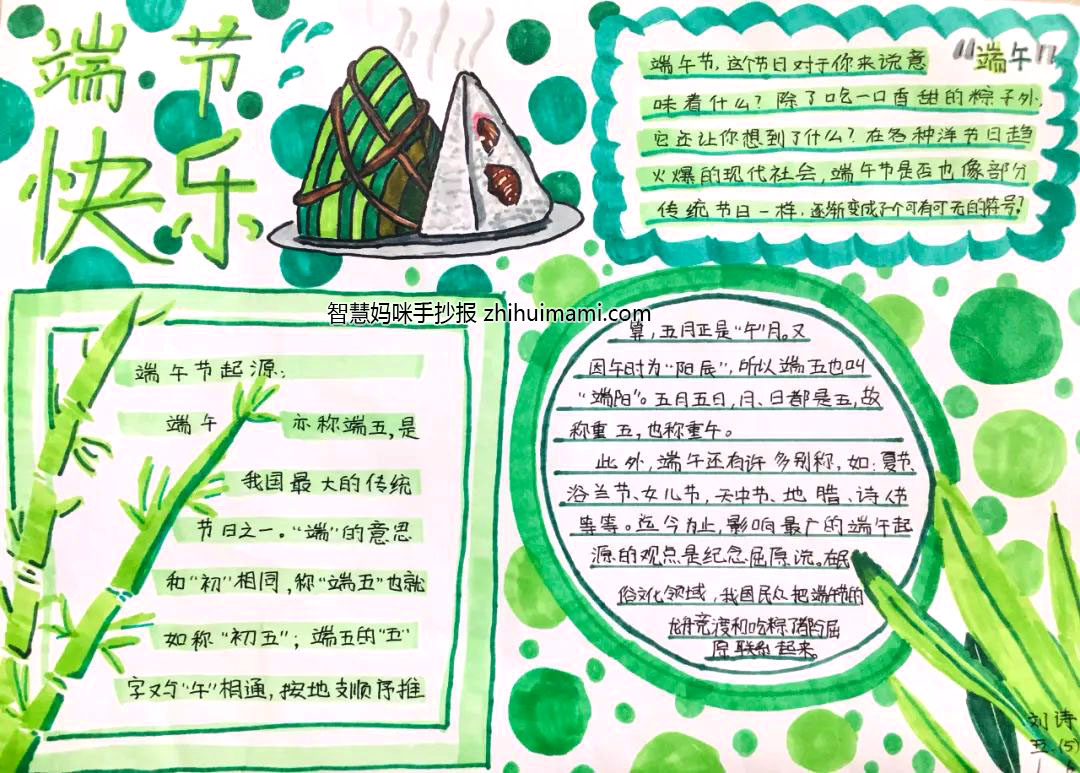 端节
快乐
"端午"
端午节,这个节日对于你来说意
味着什么?除了吃一口香甜的粽子外.
它还让你想到了什么?在各种洋节日趋
火爆的现代社会,端午节是否也像部分
传统节日一样,逐渐变成了个可有可无的符号?
智慧妈咪手抄报 zhihuimami.com
端午节起源:
端午 亦称端五,是
我国最大的传统
节日之一。“端”的意思
和“初”相同,称“端五”也就
如称“初五”;端五的“五”
字又与“午”相通,按地支顺序推
算,五月正是“午”月。又
因午时为“阳辰”,所以端五也叫
“端阳”。五月五日,月、日都是五,故
称重五,也称重午。
此外,端午还有许多别称,如:夏节、
浴兰节、女儿节,天中节、地腊、诗人节
等等。迄今为止,影响最广的端午起
源的观点是纪念屈原流。在民
俗文化领域,我国民众把端午节的
龙舟竞渡和吃粽子都与屈
原联系起来。
刘诗
五(5)